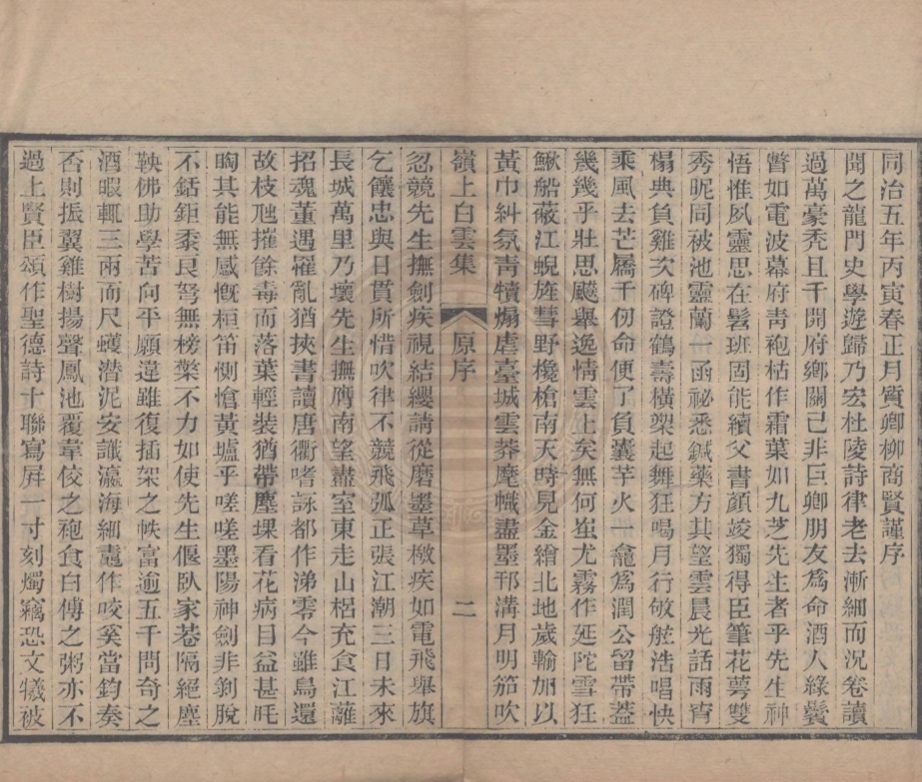 同治五年丙寅春正月質卿柳商賢謹序
聞之龍門史學遊歸乃宏杜陵詩律老去漸細而況卷讀
過萬豪禿且千開府鄉關已非巨卿朋友爲命酒人綠鬢
瞥如電波幕府青袍枯作霜葉如九芝先生者乎先生神
悟惟夙靈思在髫班固能續父書顏竣獨得臣筆花萼雙
秀昵同被池靈蘭一函祕悉鍼藥方其望雲晨光話雨宵
榻典負雞次碑證鶴壽橫槊起舞狂喝月行敂舷浩唱快
乘風去芒屩千仞命便了負囊芋火一龕爲潤公留帶蓋
幾幾乎壯思飈舉逸情雲上矣無何蚩尤霧作延陀雪狂
鰍船蔽江蜺旌彗野欃槍南天時見金繒北地歲輸加以
黃巾糾氛靑犢煽虐臺城雲莽麾幟盡墨邗溝月明笳吹
嶺上白雲集 原序 二
忽競先生撫劍疾視結纓請從磨墨草檄疾如電飛舉旗
乞饟忠與日貫所惜吹律不競飛弧正張江潮三日未來
長城萬里乃壞先生撫膺南望盡室東走山梠充食江蘺
招魂董遇罹亂猶挾書讀唐衢嗜詠都作涕零今雖鳥還
故枝虺摧餘毒而落葉輕裝猶帶塵堁看花病目益甚眊
眴其能無感慨桓笛惻愴黃壚乎嗟嗟墨陽神劍非剝脫
不銛鉅黍良弩無榜檠不力如使先生偃臥家巷隔絕塵
鞅佛助學苦向平願違雖復插架之帙富逾五千問奇之
酒暇輒三兩而尺蠖潛泥安識瀛海細蠹作咬奚當鈞奏
否則振翼雞樹揚聲鳳池覆韋佼之袍食白傅之粥亦不
過上賢臣頌作聖德詩十聯寫屛一寸刻燭竊恐文犧被